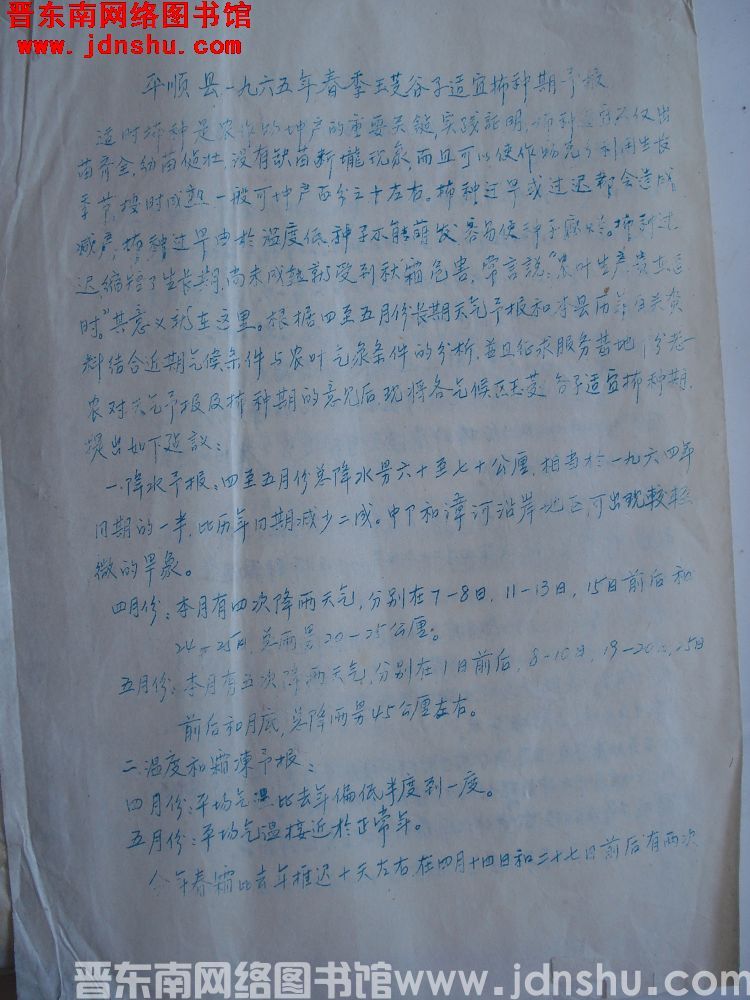 晋东南网络图书馆
www.jdnshu.com
平顺县一九六五年春季玉茭谷子适宜播种期予报
适时播种是农作物增产的重要关键，实践証明，播种适时不仅出
苗齐全，幼苗健壮，没有缺苗断壠现象，而且可以使作物充分利用生长
季节，按时成熟，一般可增产百分之十左右。播种过早或过迟都会造成
减产，播种过早由於温度低种子不能萌发容易使种子
迟，缩短了生长期，尚未成熟就受到秋霜危害，常言説："农叶生产贵在适
时。"其意义就在这里。根据四至五月份长期天气予报和本县历年有关资
料结合近期气候条件与农叶气象条件的分析，並且征求服务基地
农对天气予报及播种期的意见后，现将各气候区玉茭、谷子适宜播种期，
提出如下建議：
一、降水予报：四至五月份总降水量六十至七十公厘，相当於一九六四年
同期的一半，比历年同期减少二成。中下和漳河沿岸地区可出现較輕
微的旱象。
四月份：本月有四次降雨天气，分别在7-8日，11-13日，15日前后和
24-25日，总雨量20-25公厘。
五月份：本月有五次降雨天气，分别在1日前后，8-10日，19-20日，25日
前后和月底，总降雨量45公厘左右。
二、温度和霜凍予报：
四月份：平均气温比去年偏低半度到一度。
五月份：平均气温接近於正常年。
今年春霜比去年推迟十天左右，在四月十四日和二十七日前后有两次
晋东南网络图书馆www.jdnshu.com